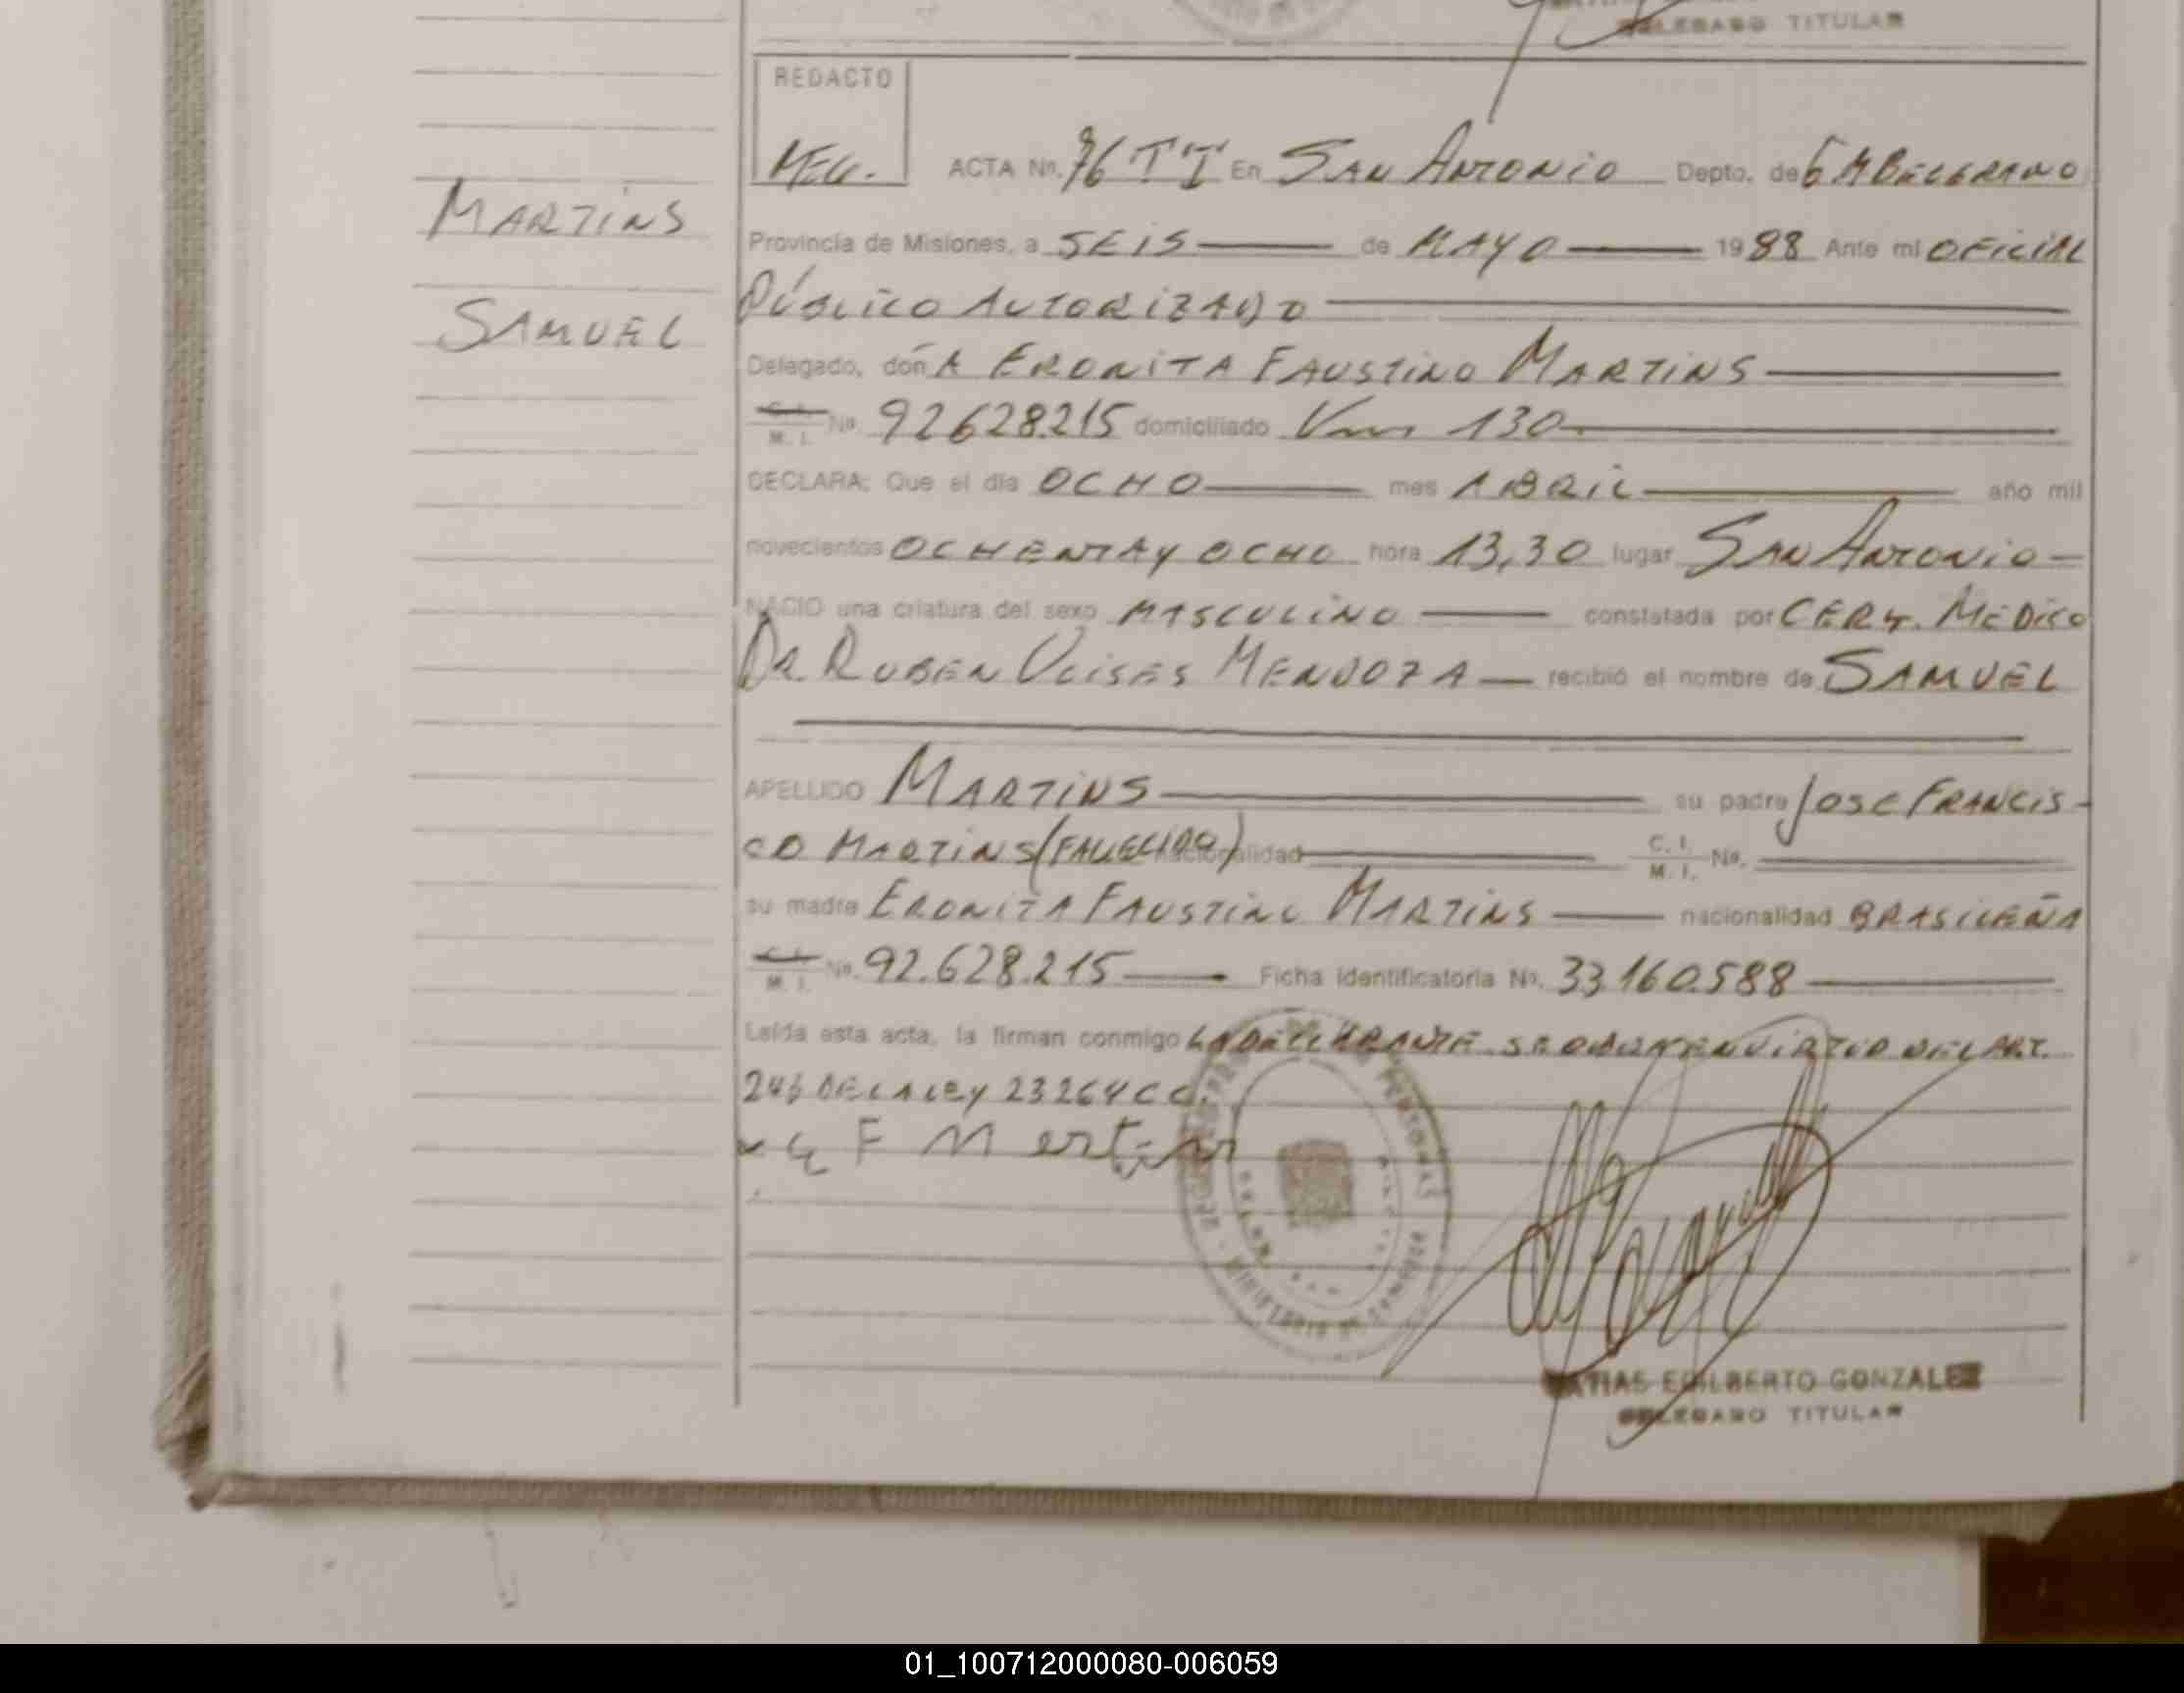 DELEGADO TITULAR
REDACTO
MEG.
ACTA No. 76 TºI En SAN ANTONIO Depto. de G M BELGRANO
MARTINS
Provincia de Misiones, a SEIS de MAYO 1988 Ante mi OFICIAL
PÚBLICO AUTORIZADO
SAMUEL
Delegado, doñA ERONITA FAUSTINO MARTINS
C. I. M. I. No. 92628215 domiciliado Km 130
DECLARA: Que el día OCHO mes ABRIL año mil
novecientos OCHENTA Y OCHO hora 13,30 lugar SAN ANTONIO
NACIO una criatura del sexo MASCULINO constatada por CERT. MEDICO
DR. RUBEN ULISES MENDOZA recibió el nombre de SAMUEL
APELLIDO MARTINS su padre JOSE FRANCIS-
CO MARTINS (FALLECIDO) nacionalidad C. I. M. I. No.
su madre ERONITA FAUSTINO MARTINS nacionalidad BRASILEÑA
C. I. M. I. No. 92.628.215 Ficha Identificatoria No. 33160.588
Leída esta acta, la firman conmigo LA DECLARANTE EN VIRTUD DEL ART.
DE LA LEY 23264 C C.
F Martins
MATIAS EDILBERTO GONZALEZ
DELEGADO TITULAR
01_100712000080-006059